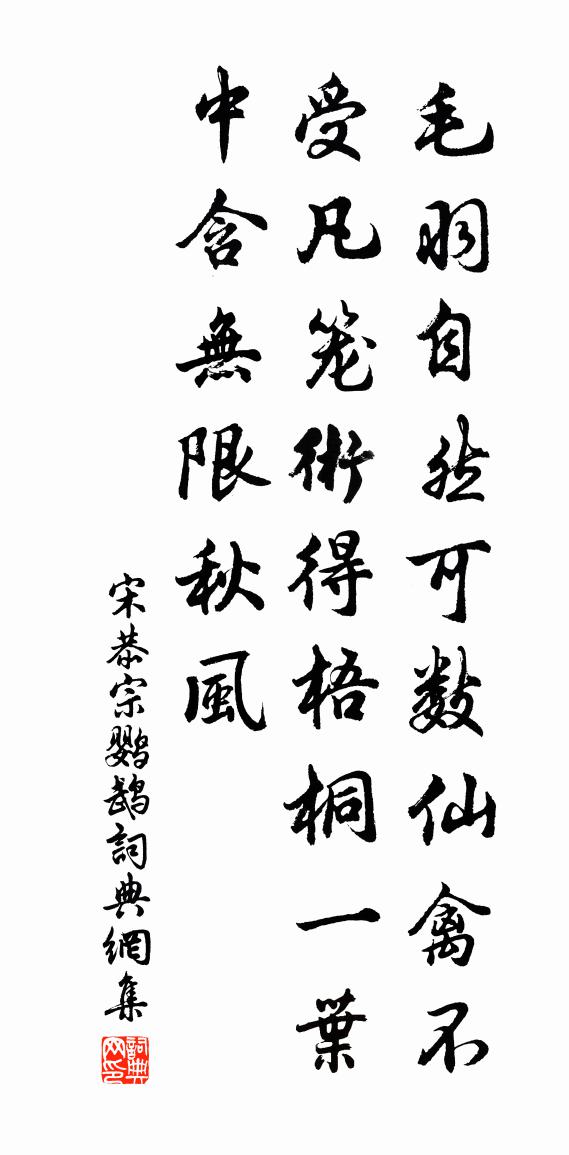 毛羽自然可数仙禽不
受凡笼術得梧桐一葉
中含無限秋風
宋恭宗鹦鹉詞典網集
詞典网印